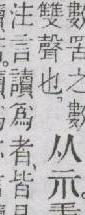 數罟之數
雙聲也、
从示
注言讀爲者、皆